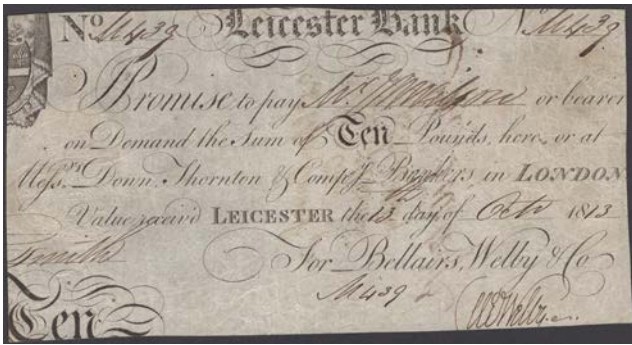 No M439 Leicester Bank No M439
I Promise to pay Mr or bearer
on Demand the Sum of Ten Pounds, here, or at
Messrs. Down, Thornton & Compy. Bankers in LONDON
Value receiv'd LEICESTER the 13th day of Octr 1813
Smith For Bellairs, Welby & Co
M439
Ten